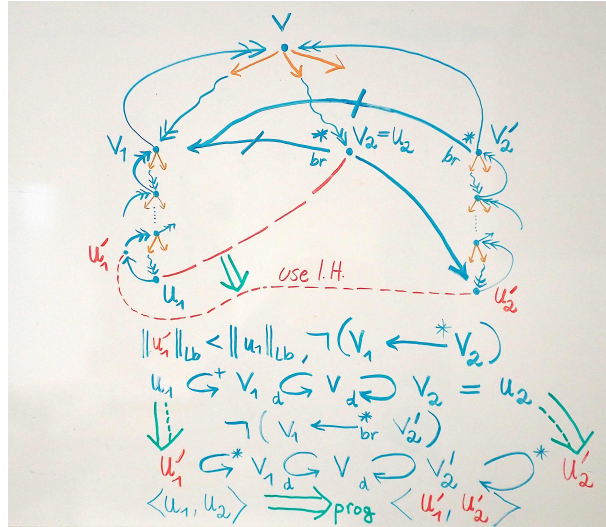 V
V₁ * br V₂=U₂ * br V₂′
U₁′ use I.H.
U₁ U₂′
‖U₁′‖Lb < ‖U₁‖Lb, ¬(V₁ ←* V₂)
U₁ ↩⁺ V₁ d↩ V d↪ V₂ = U₂
¬(V₁ ←*br V₂′)
U₁′ ↩* V₁ d↩ V d↪ V₂′ ↪* U₂′
⟨U₁, U₂⟩ ⇒prog ⟨U₁′, U₂′⟩